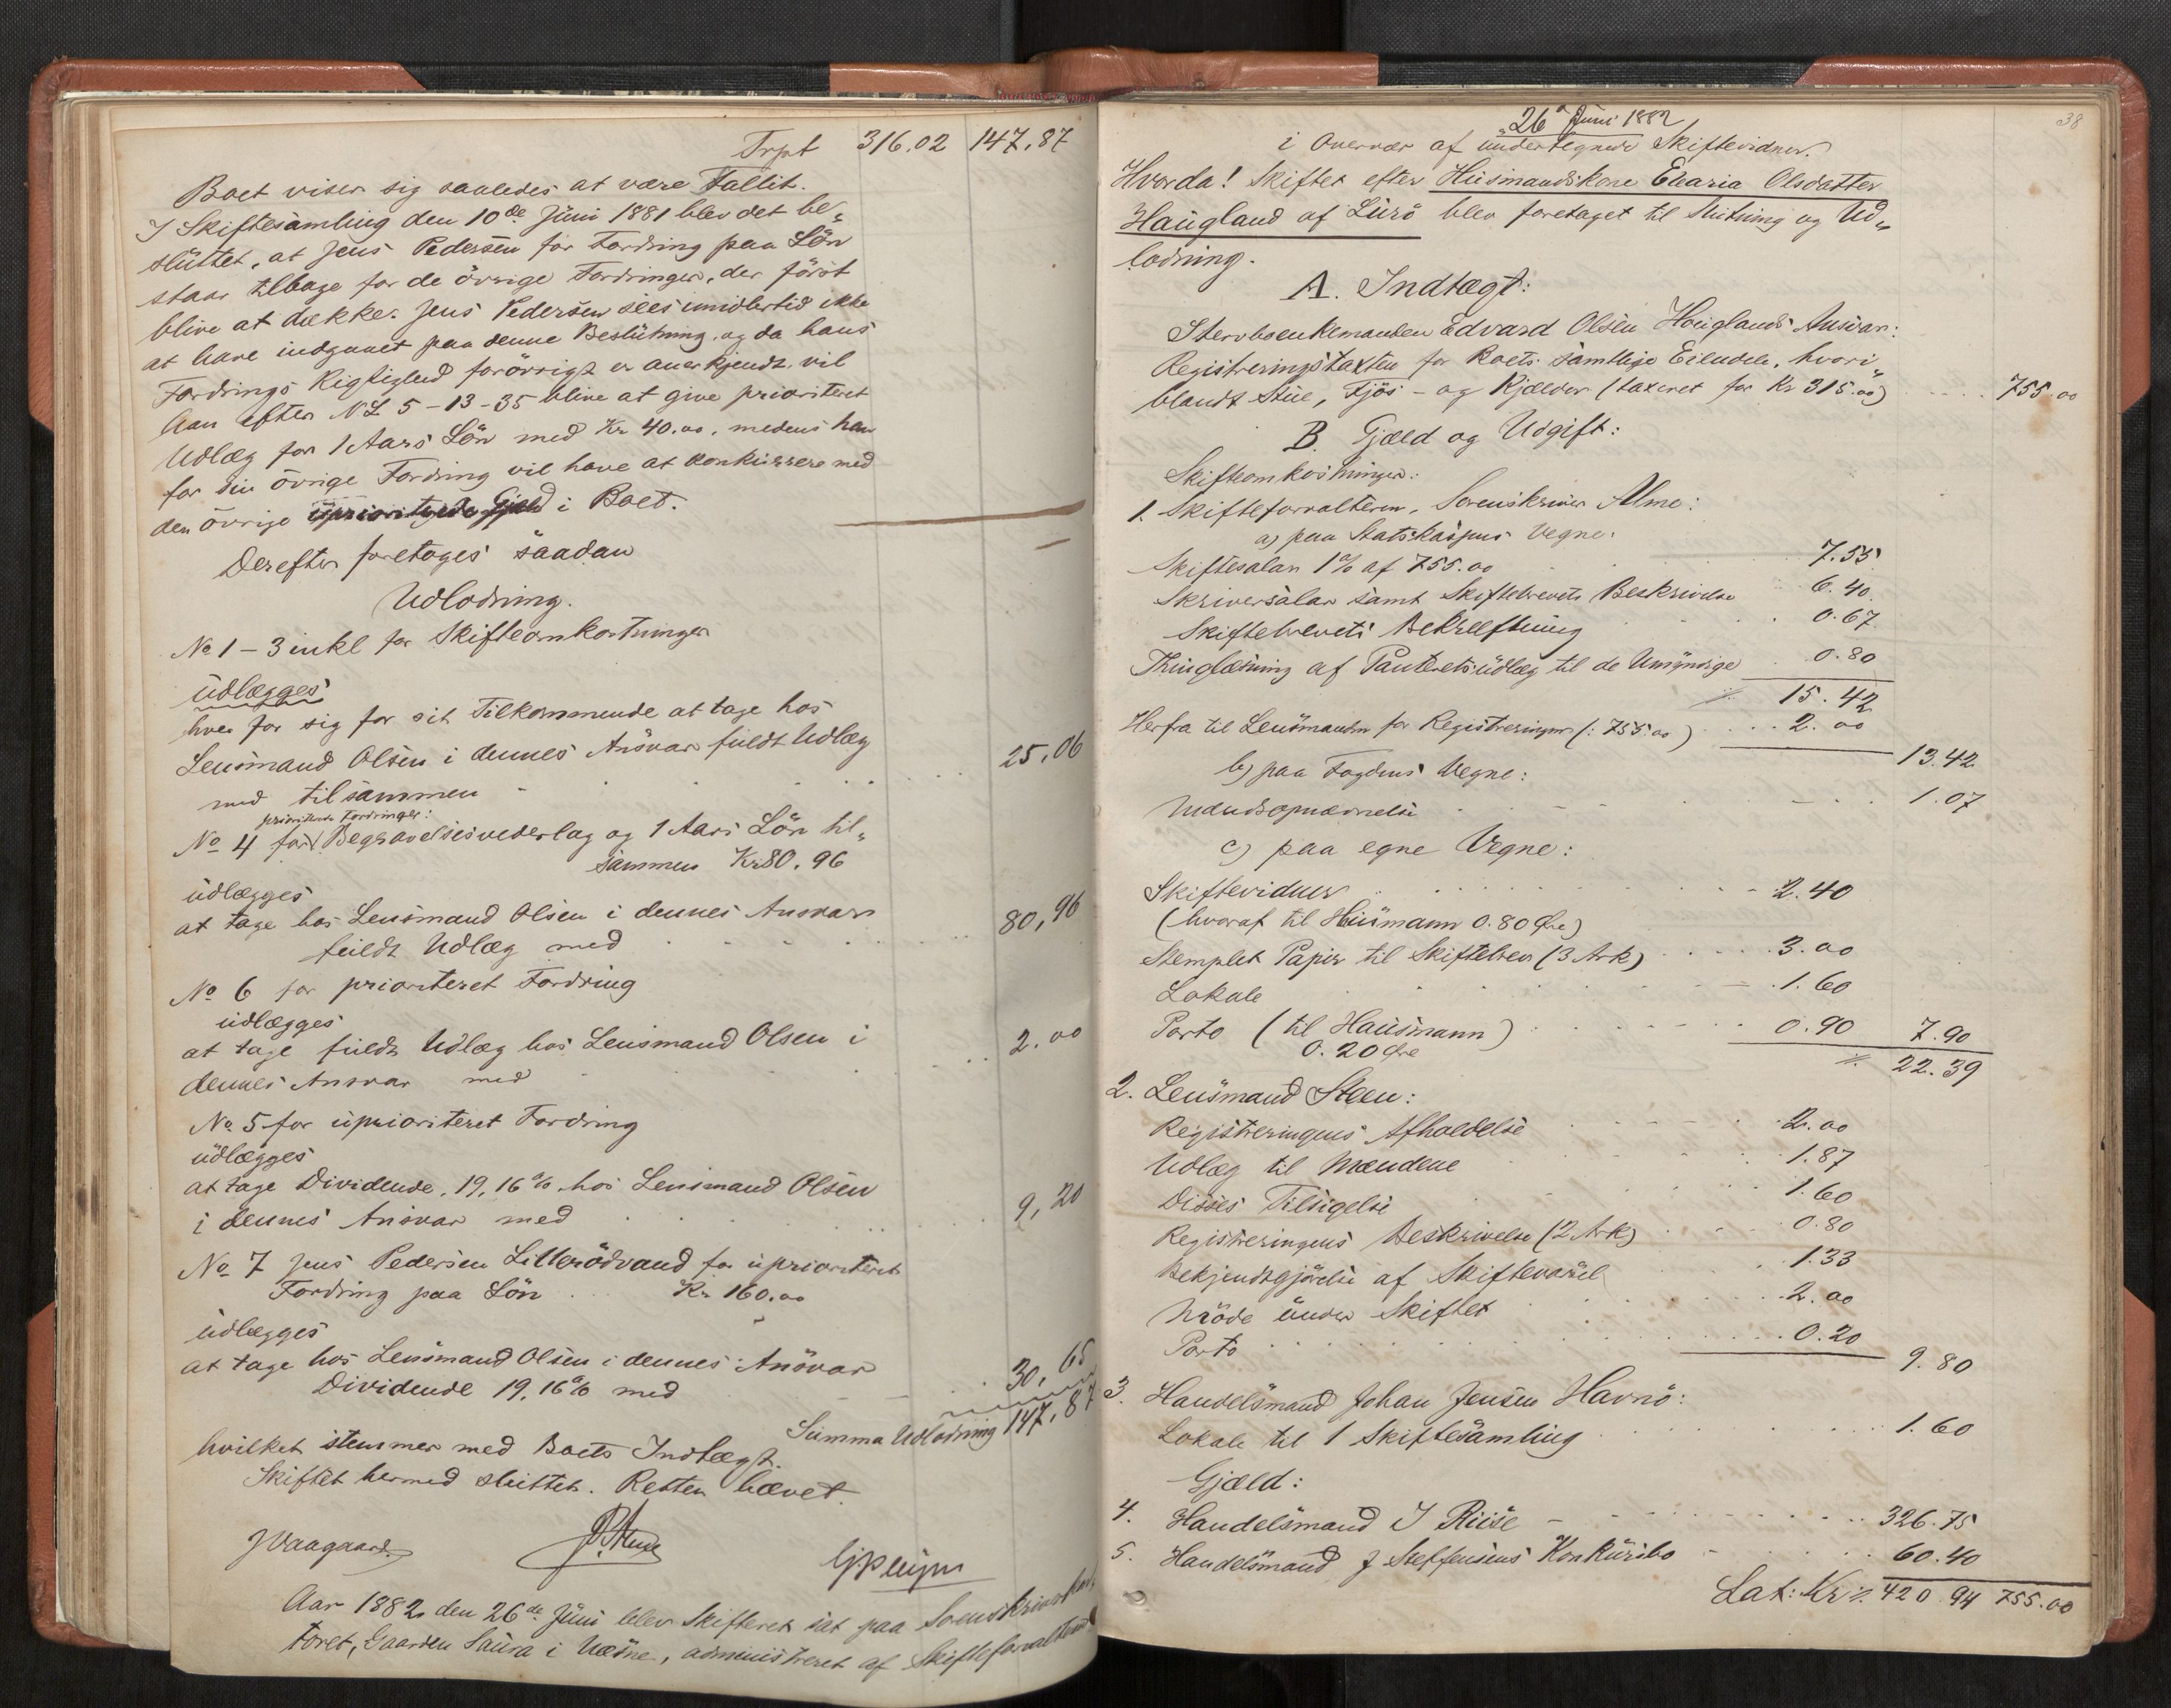 Trpt 316.02 147,87
Boet viser sig saaledes at være Fallit.
I Skiftesamling den 10de Juni 1881 blev det be„
sluttet, at Jens Pedersen for Fordring paa Lön
staar tilbage for de övrige Fordringer, der först
blive at dække. Jens Pedersen sees imidlertid ikke
at have indgaaet paa denne Beslutning, og da hans
Fordrings Rigtighed forövrigt er anerkjendt, vil
han efter NL 5-13-35 blive at give prioriteret
Udlæg for 1 Aars Lön med Kr 40.00, medens han
for sin övrige Fordring vil have at konkurrere med
den övrige uprioriterede Gjæld i Boet.
Derefter foretoges saadan
Udlodning.
No 1 – 3 inkl for Skifteomkostninger
udlægges
hver for sig for sit Tilkommende at tage hos
Lensmand Olsen i dennes Ansvar fuldt Udlæg
med tilsammen 25,06
prioriterede Fordringer:
No 4 for Begravelsesvederlag og 1 Aars Lön til„
sammen Kr 80.96
udlægges
at tage hos Lensmand Olsen i dennes Ansvar
fuldt Udlæg med 80,96
No 6 for prioriteret Fordring
udlægges
at tage fuldt Udlæg hos Lensmand Olsen i
dennes Ansvar med 2.00
No. 5 for uprioriteret Fordring
udlægges
at tage Dividende, 19,16% hos Lensmand Olsen
i dennes Ansvar med 9,20
No 7 Jens Pedersen Lilleródvand for uprioriteret
Fordring paa Lön Kr 160.00
udlægges
at tage hos Lensmand Olsen i dennes Ansvar
Dividende 19,16% med 30,65
Summa Udlodning 147,87
hvilket stemmer med Boets Indtægt.
Skiftet hermed sluttet. Retten hævet.
J Vaagaard
Aar 1882 den 26de Juni blev Skifteret sat paa Sorenskriverkon„
toret, Gaarden Saura i Næsne, administreret af Skifteforvalteren
38
26de Juni 1882
i Overvær af undertegnede Skiftevidner.
Hvorda! Skiftet efter Husmandskone Elearia Olsdatter
Haugland af Lurö blev foretaget til Slutning og Ud„
lodning.
A. Indtægt:
Stervboenkemanden Edvard Olsen Hauglands Ansvar:
Registreringstaxten for Boets samtlige Eiendele, hvori„
blandt Stue, Fjös- og Kjælder (taxeret for Kr 315.00) 755.00
B. Gjæld og Udgift:
Skifteomkostninger:
1. Skifteforvalteren, Sorenskriver Alme:
a) paa Statskassens Vegne:
Skiftesalær 1% af 755.00 7.55
Skriversalær samt Skiftebrevets Beskrivelse 6.40
Skiftebrevets Bekræftning 0.67
Thinglæsning af Panteretsudlæg til de Umyndige 0.80
15.42
Herfra til Lensmanden for Registreringen (: 755.00) 2.00
13.42
b) paa Fogdens Vegne:
Mandsopnævnelse 1.07
c) paa egne Vegne:
Skiftevidner 2.40
(hvoraf til Husmann 0.80 Øre)
Stemplet Papir til Skiftebrev (3 Ark) 3.00
Lokale 1.60
Porto (til Hausmann) 0.90 7.90
0.20 Øre
22.39
2. Lensmand Steen:
Registreringens Afholdelse 2.00
Udlæg til Mændene 1.87
Disses Tilsigelse 1.60
Registreringens Beskrivelse (2 Ark) 0.80
Bekjendtgjörelse af Skiftevarsel 1.33
Möde under Skiftet 2.00
Porto 0.20
9.80
3. Handelsmand Johan Jensen Havnö:
Lokale til 1 Skiftesamling 1.60
Gjæld:
4. Handelsmand I Riise 326.75
5. Handelsmand J Steffensens Konkursbo 60.40
Lat: Kr 420.94 755.00